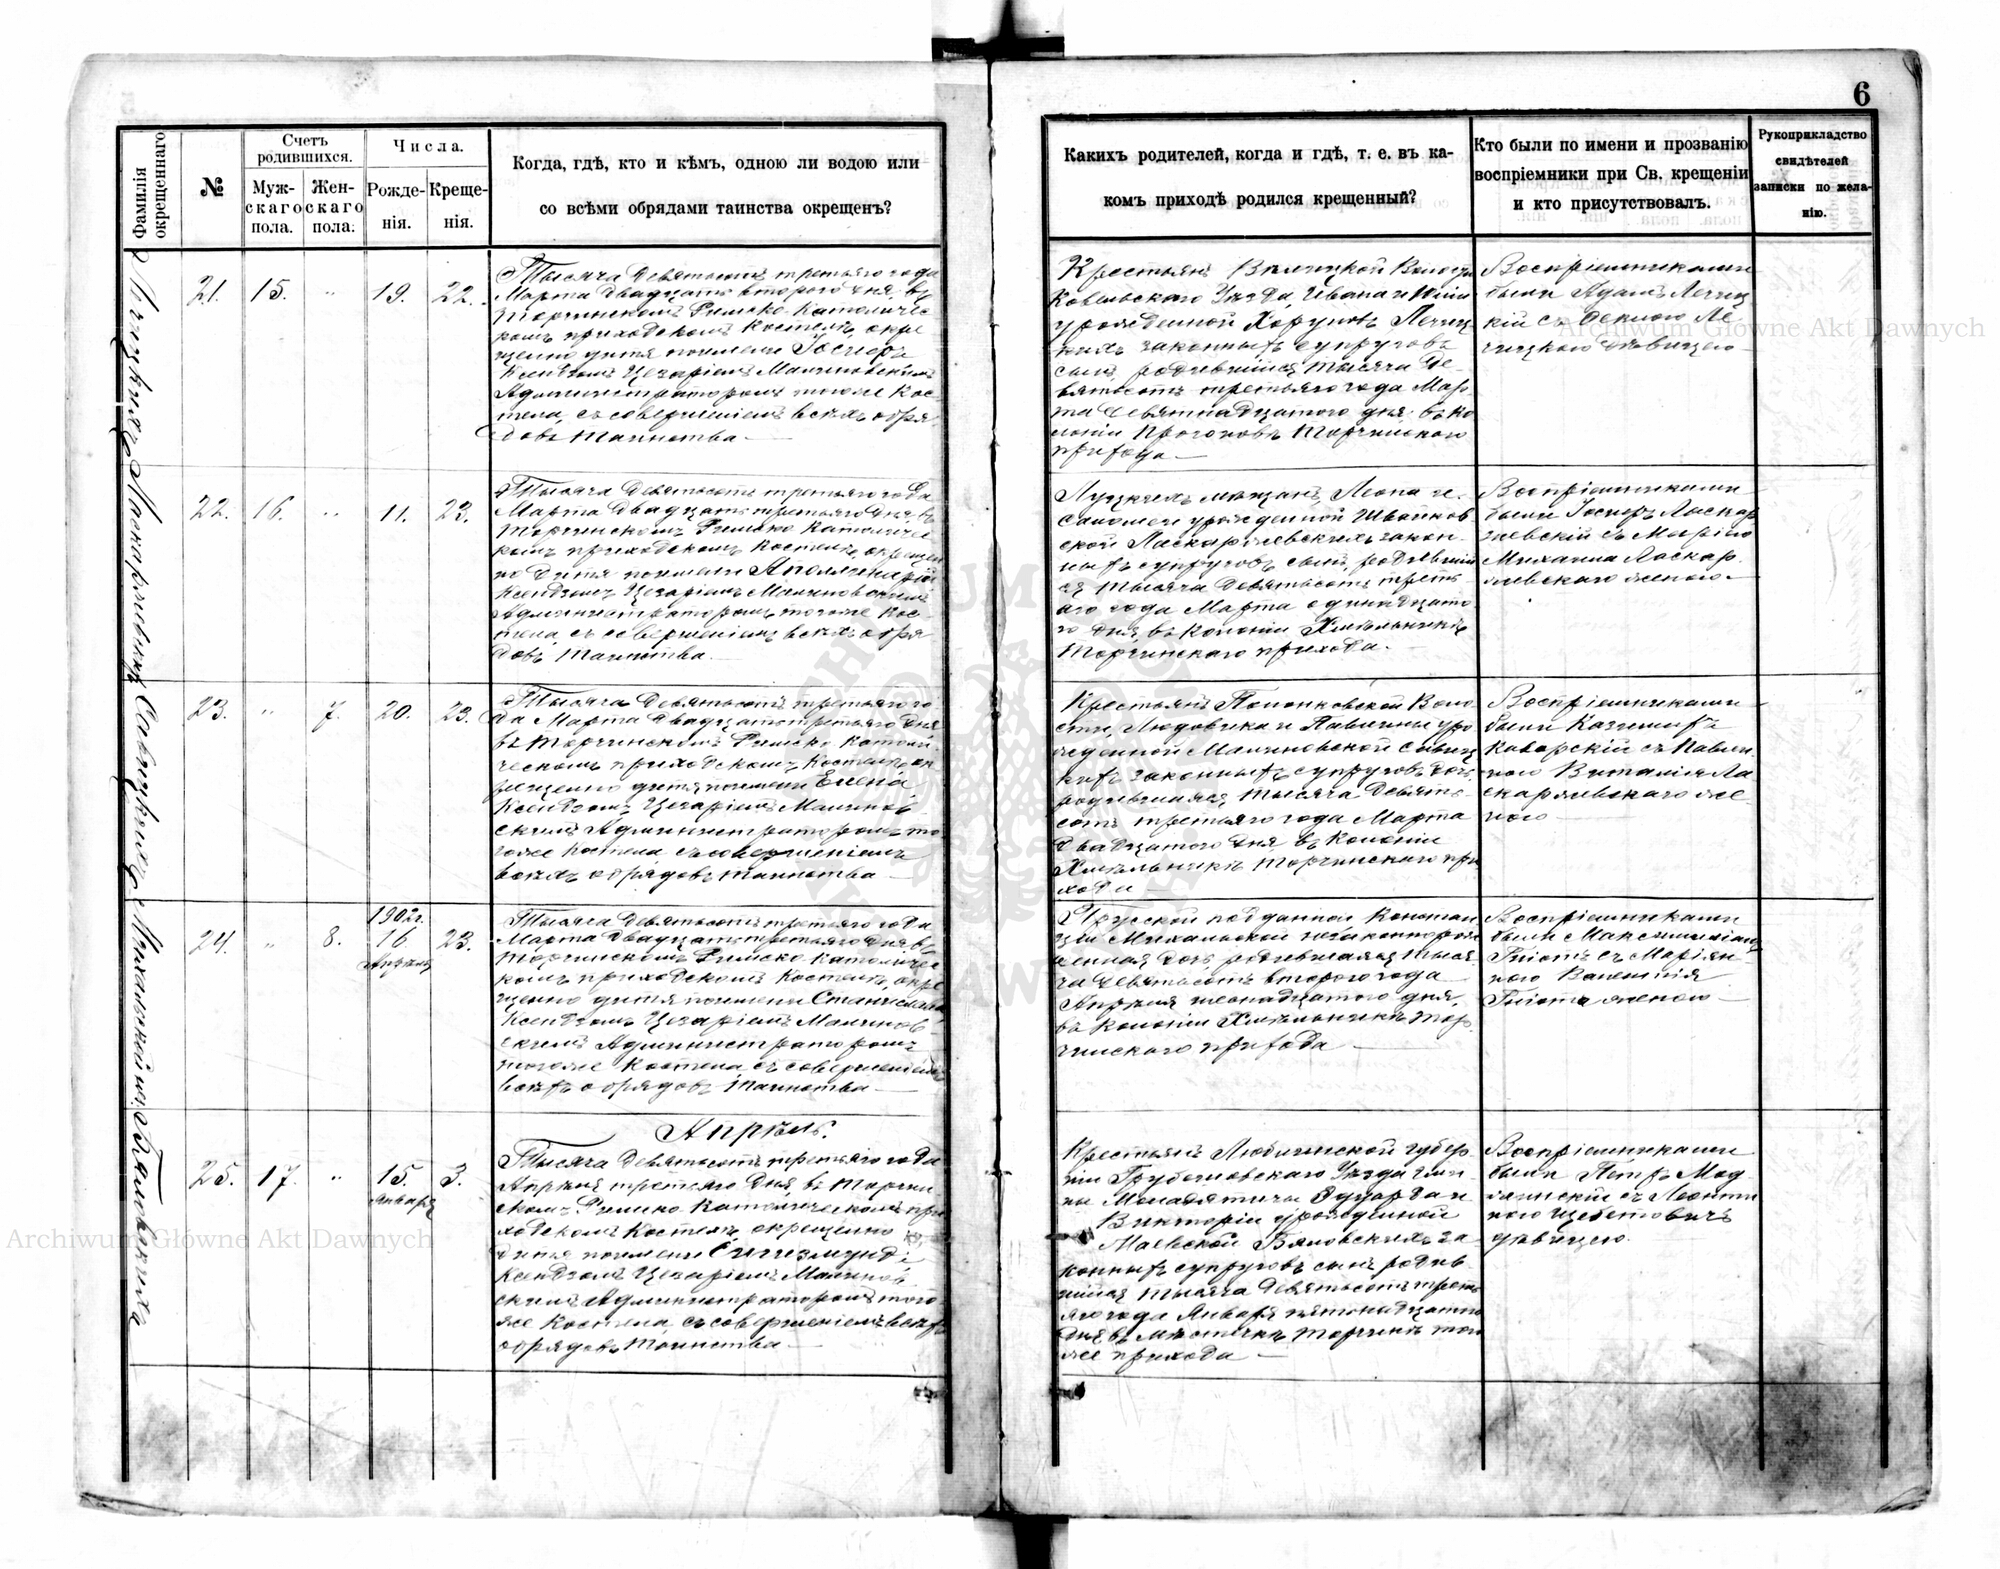 6
Фамилія окрещеннаго
№
Счетъ родившихся.
Мужскаго пола.
Женскаго пола.
Числа.
Рожденія.
Крещенія.
Когда, гдѣ, кто и кѣмъ, одною ли водою или
со всѣми обрядами таинства окрещенъ?
Какихъ родителей, когда и гдѣ, т. е. въ ка-
комъ приходѣ родился крещенный?
Кто были по имени и прозванію
воспріемники при Св. крещеніи
и кто присутствовалъ.
Рукоприкладство
свидѣтелей
записки по жела-
нію.
21. 15. " 19. 22.
Тысяча девятьсотъ третьяго года
Марта двадцать втораго дня, въ
Торчинскомъ Римско-Католичес
комъ приходскомъ Костелѣ, окре
щено дитя по имени
Ксендзомъ Цезаріемъ Малиновскимъ
Администраторомъ тогоже Кос
тела, съ совершеніемъ всѣхъ обря
довъ таинства.—
Крестьянъ
Ковельскаго Уѣзда, Ивана и
урожденной
законныхъ супруговъ
сынъ, родившійся тысяча де-
вятьсотъ третьяго года Мар
та девятнадцатого дня въ ко
лоніи Торчинскаго
прихода.—
Воспріемниками
были Адамъ
кій съ
дѣвицею—
22. 16. " 11. 23.
Тысяча девятьсотъ третьяго года
Марта двадцать третьяго дня въ
Торчинскомъ Римско Католичес
комъ приходскомъ Костелѣ, окреще
но дитя по имени Аполлинарій
Ксендзомъ Цезаріемъ Малиновскимъ
Администраторомъ тогоже Кос
тела, съ совершеніемъ всѣхъ обря
довъ таинства.
Луцкихъ мѣщанъ, Леона и
Саломеи урожденной
ской Ласкаржевскихъ закон
ныхъ супруговъ сынъ, родившій
ся тысяча девятьсотъ треть
яго года Марта одинадцато
го дня, въ колоніи Хмѣльникѣ
Торчинскаго прихода.—
Воспріемниками
были Ласкар
жевскій съ Маріею
Михаила Ласкар
жевскаго женою.—
23. " 7. 20. 23.
Тысяча девятьсотъ третьяго го
да Марта двадцать третьяго дня
въ Торчинскомъ Римско Католи
ческомъ приходскомъ Костелѣ, ок
рещено дитя по имени Елена
Ксендзомъ Цезаріемъ Малинов
скимъ Администраторомъ то
гоже Костела съ совершеніемъ
всѣхъ обрядовъ таинства—
Крестьянъ Воло
сти, Людовика и Павлины уро
жденной Малиновской Савиц
кихъ законныхъ супруговъ дочь
родившаяся тысяча девять-
сотъ третьяго года Марта
двадцатого дня въ колоніи
Хмѣльникѣ Торчинскаго при
хода—
Воспріемниками
были Казимиръ
съ Павли
ною Виталія Ла
скаржевскаго же
ною—
24. " 8. 1902г. 16 Апрѣля 23.
Тысяча девятьсотъ третьяго года
Марта двадцать третьяго дня въ
Торчинскомъ Римско Католичес
комъ приходскомъ Костелѣ, окре
щено дитя по имени Станислава
Ксендзомъ Цезаріемъ Малинов
скимъ Администраторомъ
тогоже Костела, съ совершеніемъ
всѣхъ обрядовъ таинства—
Прусской подданной Констан
ціи Михальской незаконнорож
денная дочь родившаяся тыся
ча девятьсотъ второго года
Апрѣля шеснадцатого дня,
въ колоніи Хмѣльникѣ Тор
чинскаго прихода—
Воспріемниками
были Максимиліанъ
съ Маріян
ною
женою—
Апрѣль.
25. 17. " 15. Января 3.
Тысяча девятьсотъ третьяго года
Апрѣля третьяго дня, въ Торчин
скомъ Римско Католическомъ при
ходскомъ Костелѣ, окрещено
дитя по имени Сигизмундъ
Ксендзомъ Цезаріемъ Малинов
скимъ Администраторомъ того
же Костела, съ совершеніемъ всѣхъ
обрядовъ таинства—
Крестьянъ Люблинской губер
ніи Грубешовскаго Уѣзда гми
ны Молодятичи Эдуарда и
Викторіи урожденной
Маевской за
конныхъ супруговъ сынъ родив
шійся тысяча девятьсотъ треть
яго года Января пятонадцатого
дня въ мѣстечкѣ Торчинѣ того
же прихода—
Воспріемниками
были Петръ
съ Леонти
ною
дѣвицею.
Archiwum Główne Akt Dawnych
Archiwum Główne Akt Dawnych